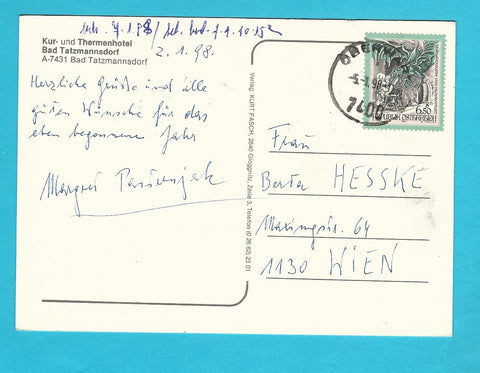 Kur- und Thermenhotel
Bad Tatzmannsdorf
A-7431 Bad Tatzmannsdorf
2. 1. 98.
Herzliche Grüße und alle
guten Wünsche für das
eben begonnene Jahr
Margret
Verlag: KURT FASCH, 2640 Gloggnitz, Zeile 3, Telefon (0 26 62) 23 01
7400
6.50
REPUBLIK ÖSTERREICH
Frau
Berta HESSKE
Maxingstr. 64
1130 WIEN